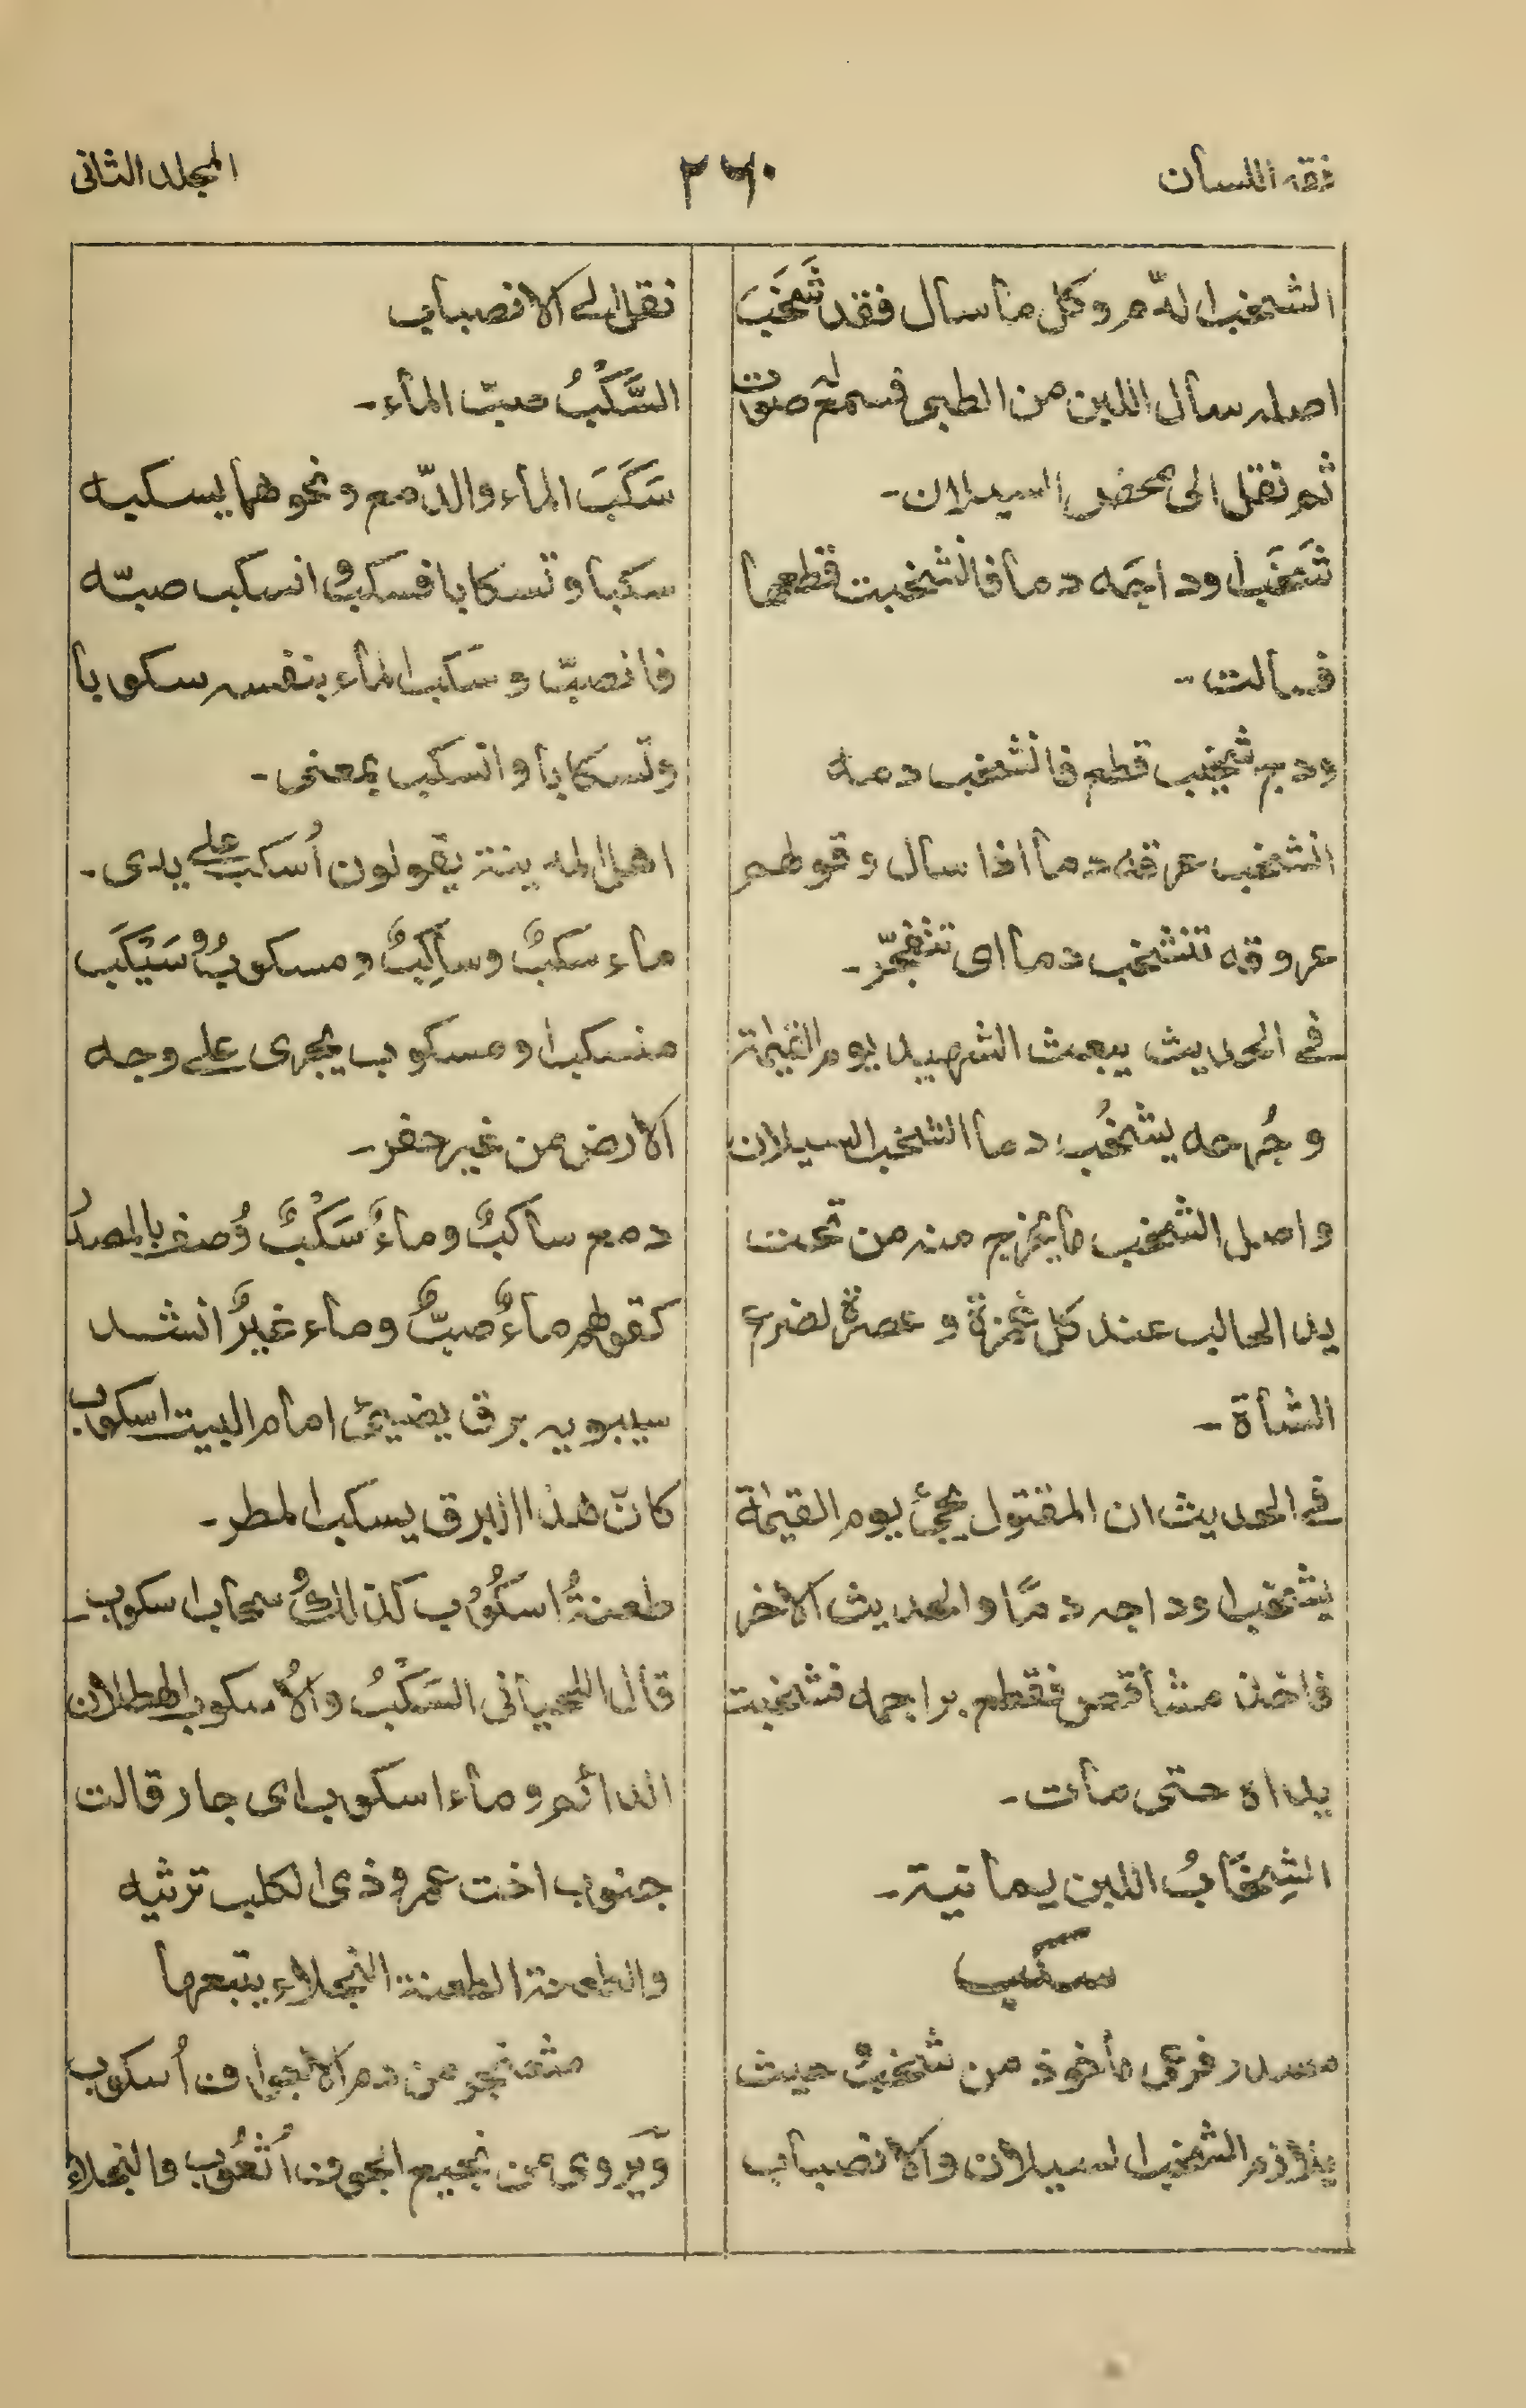 فقه اللسان
٢٦٠
المجلد الثانى
الشخب الدّم وكل ما سال فقد شَخَبَ
اصله سال اللبن من الطبى فسمع له صوت
ثم نقل الى محض السيلان-
شَخَبَ اوداجَه دما فانشخبت قطعها
فسالت-
ودج شخيب قطع فانشخب دمه
انشخب عرقه دما اذا سال وقولهم
عروقه تنشخب دما اى تنفجّر-
فى الحديث يبعث الشهيد يوم القيٰمة
وجُرحه يشخُب دما الشخب السيلان
واصل الشخب ما يخرج منه من تحت
يد الحالب عند كل غمزة وعصرة لضرع
الشاة-
فى الحديث ان المقتول يجئ يوم القيٰمة
يشخب اوداجه دمًا والحديث الاخر
فاخذ مشاقص فقطع براجمه فشخبت
يداه حتى مات-
الشِخَابُ اللبن يمانية-
سكب
مصدر فرعى ماخوذ من شخبٌ حيث
يلازم الشخب السيلان والانصباب
نقل الى الانصباب
السَّكْبُ صبّ الماء-
سَكَبَ الماء والدّمع ونحوهما يسكبه
سكبا وتسكابا فسكب وانسكب صبّه
فانصبّ وسَكب الماء بنفسه سكوبا
وتسكابا وانسكب بمعنى-
اهل المدينة يقولون اُسكب على يدى-
ماء سكبٌ وساكِبٌ ومسكوبٌ وسَيْكَب
منسكب او مسكوب يجرى على وجه
الارض من غير حفر-
دمع ساكبٌ وماءٌ سَكْبٌ وُصف بالمصدُ
كقولهم ماءٌ صبٌّ وماء غيرٌ انشد
سيبويه برق يضيئ امام البيت اسكوب
كانّ هذا البرق يسكب المطر-
طعنةٌ اسكُوُب كذالك وسحاب اسكوب-
قال اللحيانى السَكْبُ والاُسكوب الهطلان
الدائم وماء اسكوب اى جار قالت
جنوب اخت عمرو ذى الكلب ترثيه
والطاعنة الطعنة النجلاء يتبعها
مثعنجر من دم الاجواف اُسكوب
ويَروى من نجيع الجوف اُثعُوب والنجلاء